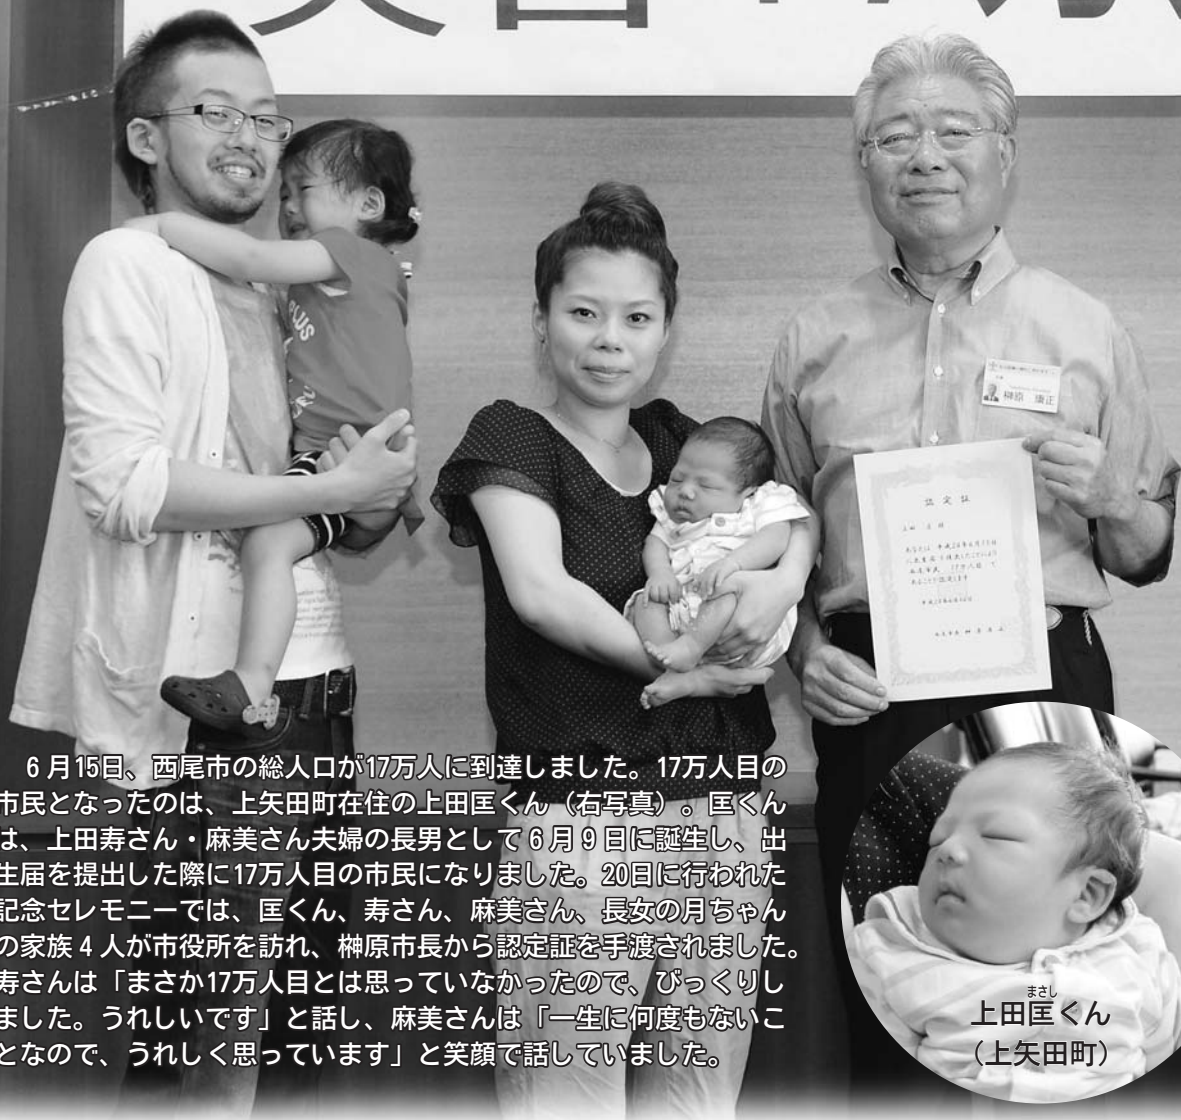 榊原 康正
認定証
6月15日、西尾市の総人口が17万人に到達しました。17万人目の
市民となったのは、上矢田町在住の上田匡くん（右写真）。匡くん
は、上田寿さん・麻美さん夫婦の長男として6月9日に誕生し、出
生届を提出した際に17万人目の市民になりました。20日に行われた
記念セレモニーでは、匡くん、寿さん、麻美さん、長女の月ちゃん
の家族4人が市役所を訪れ、榊原市長から認定証を手渡されました。
寿さんは「まさか17万人目とは思っていなかったので、びっくりし
ました。うれしいです」と話し、麻美さんは「一生に何度もないこ
となので、うれしく思っています」と笑顔で話していました。
まさし
上田匡くん
（上矢田町）